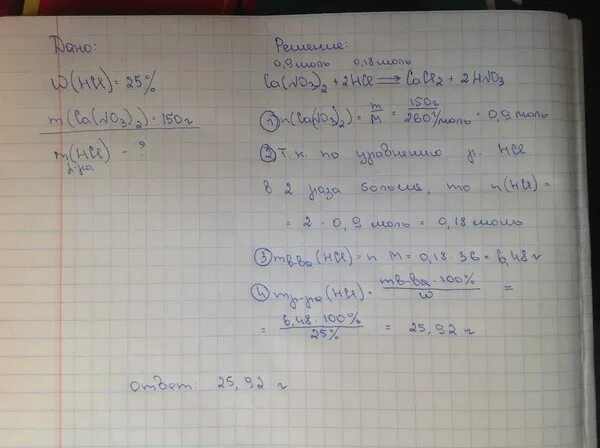 Дано:
W(HCl) = 25%
m(Ca(NO3)2) = 150г
m р-ра (HCl) - ?
Решение:
0,9 моль 0,18 моль
Ca(NO3)2 + 2HCl ⟹ CaCl2 + 2HNO3
① n(Ca(NO3)2) = m/M = 150г/260г/моль = 0,9 моль
② Т.к. по уравнению р. HCl
в 2 раза больше, то n(HCl) =
= 2 · 0,9 моль = 0,18 моль
③ mв-ва (HCl) = n · M = 0,18 · 36 = 6,48 г
④ mр-ра (HCl) = mв-ва · 100% / W =
= 6,48 · 100% / 25% = 25,92 г
ответ: 25,92 г